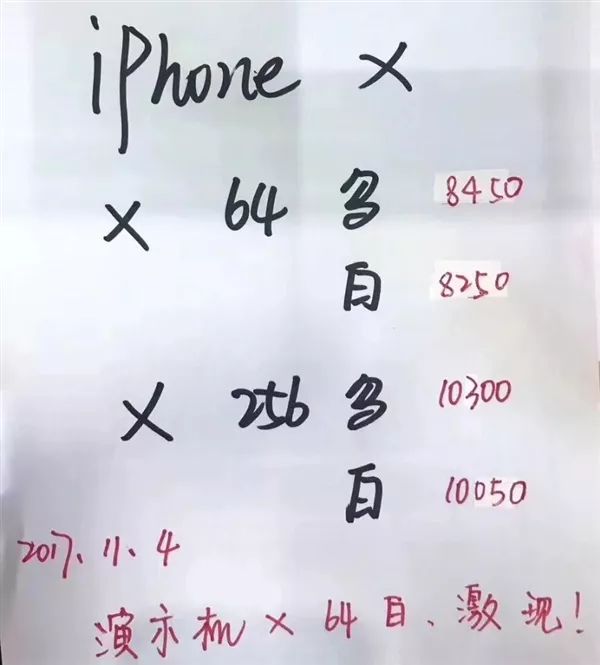 iPhone X
X 64 多 8450
白 8250
X 256 多 10300
白 10050
2017、11、4
演示机 X 64 白、激 现!